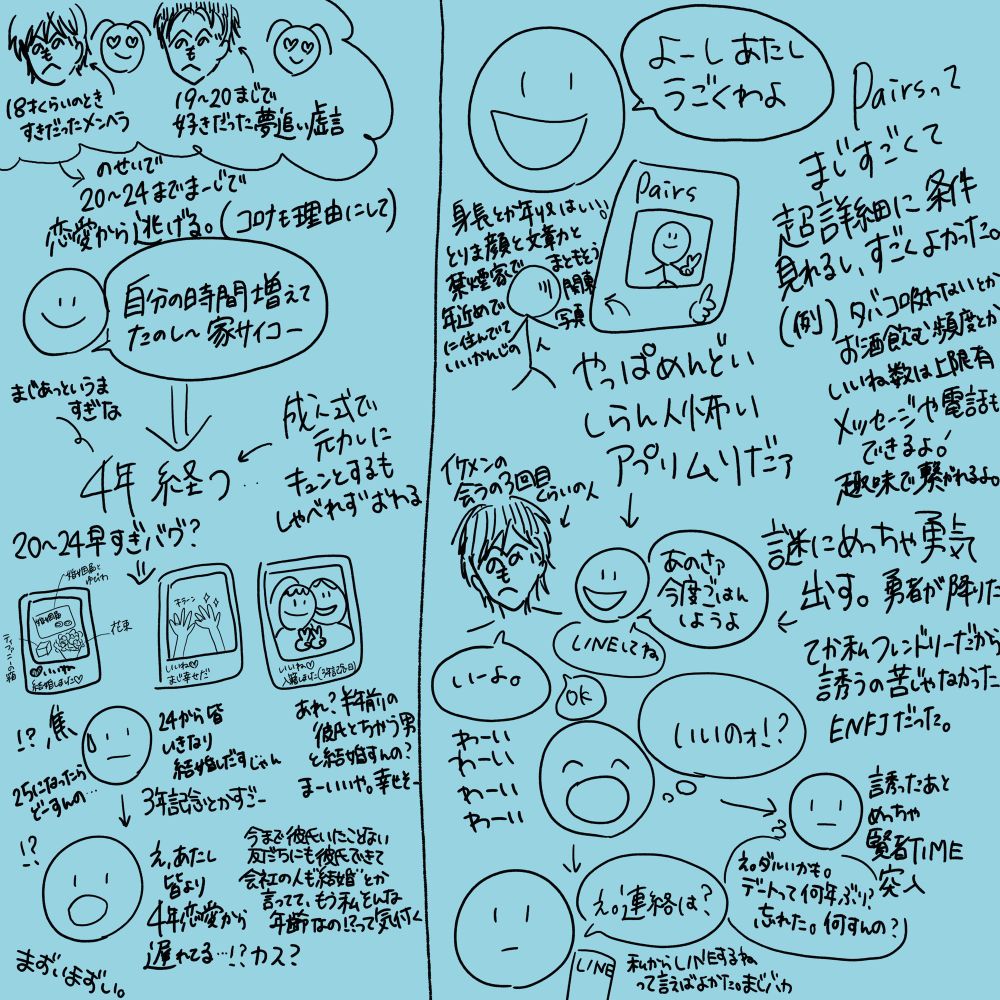 18才くらいのとき
すきだったメンヘラ
19〜20まじで
好きだった夢追い虚言
のせいで
20〜24までまーじで
恋愛から逃げる。(コロナも理由にして)
自分の時間増えて
たのし〜家サイコー
まじあっというま
すぎな
4年経つ…
成人式で
元カレに
キュンとするも
しゃべれずおわる
20〜24早すぎバグ?
婚姻届と
ゆびわ
婚姻届
ティファニーの箱
花束
いいね
結婚しました
キラーン
いいね
まじ幸せだ
いいね
!?焦
25になったら
どーすんの…
24から皆
いきなり
結婚しだすじゃん
3年記念とかすごー
あれ?半年前の
彼氏とちがう男
と結婚すんの?
まーいいや。幸せそー
!?
え、あたし
皆より
4年恋愛から
遅れてる…!?カス?
まずいまずい。
今まで彼氏いたことない
友だちにも彼氏できて
会社の人も結婚とか
言ってて、もう私そんな
年齢なの!?って気付く
よーしあたし
うごくわよ
Pairs
身長とか年収はいい。
とりま顔と文章力と
禁煙家で
まともそう
年近めで
関東
に住んでて
写真
いいかんじの
Pairsって
まじすごくて
超詳細に条件
見れるし、すごくよかった。
(例)タバコ吸わないとか
お酒飲む頻度とか
いいね数は上限有
メッセージや電話も
できるよ!
趣味で繋がれるよ。
やっぱめんどい
しらん人怖い
アプリムリだァ
イケメンの
会うの3回目
くらいの人
あのさァ
今度ごはん
しようよ
LINEしてね
いーよ。
OK
謎にめっちゃ勇気
出す。勇者が降りた
てか私フレンドリーだから
誘うの苦じゃなかった
ENFJだった。
わーい
わーい
わーい
わーい
いいのォ!?
誘ったあと
めっちゃ
賢者TIME
突入
え。ダルいかも。
デートって何年ぶり?
忘れた。何すんの?
え。連絡は?
LINE
私からLINEするね
って言えばよかった。まじバカ